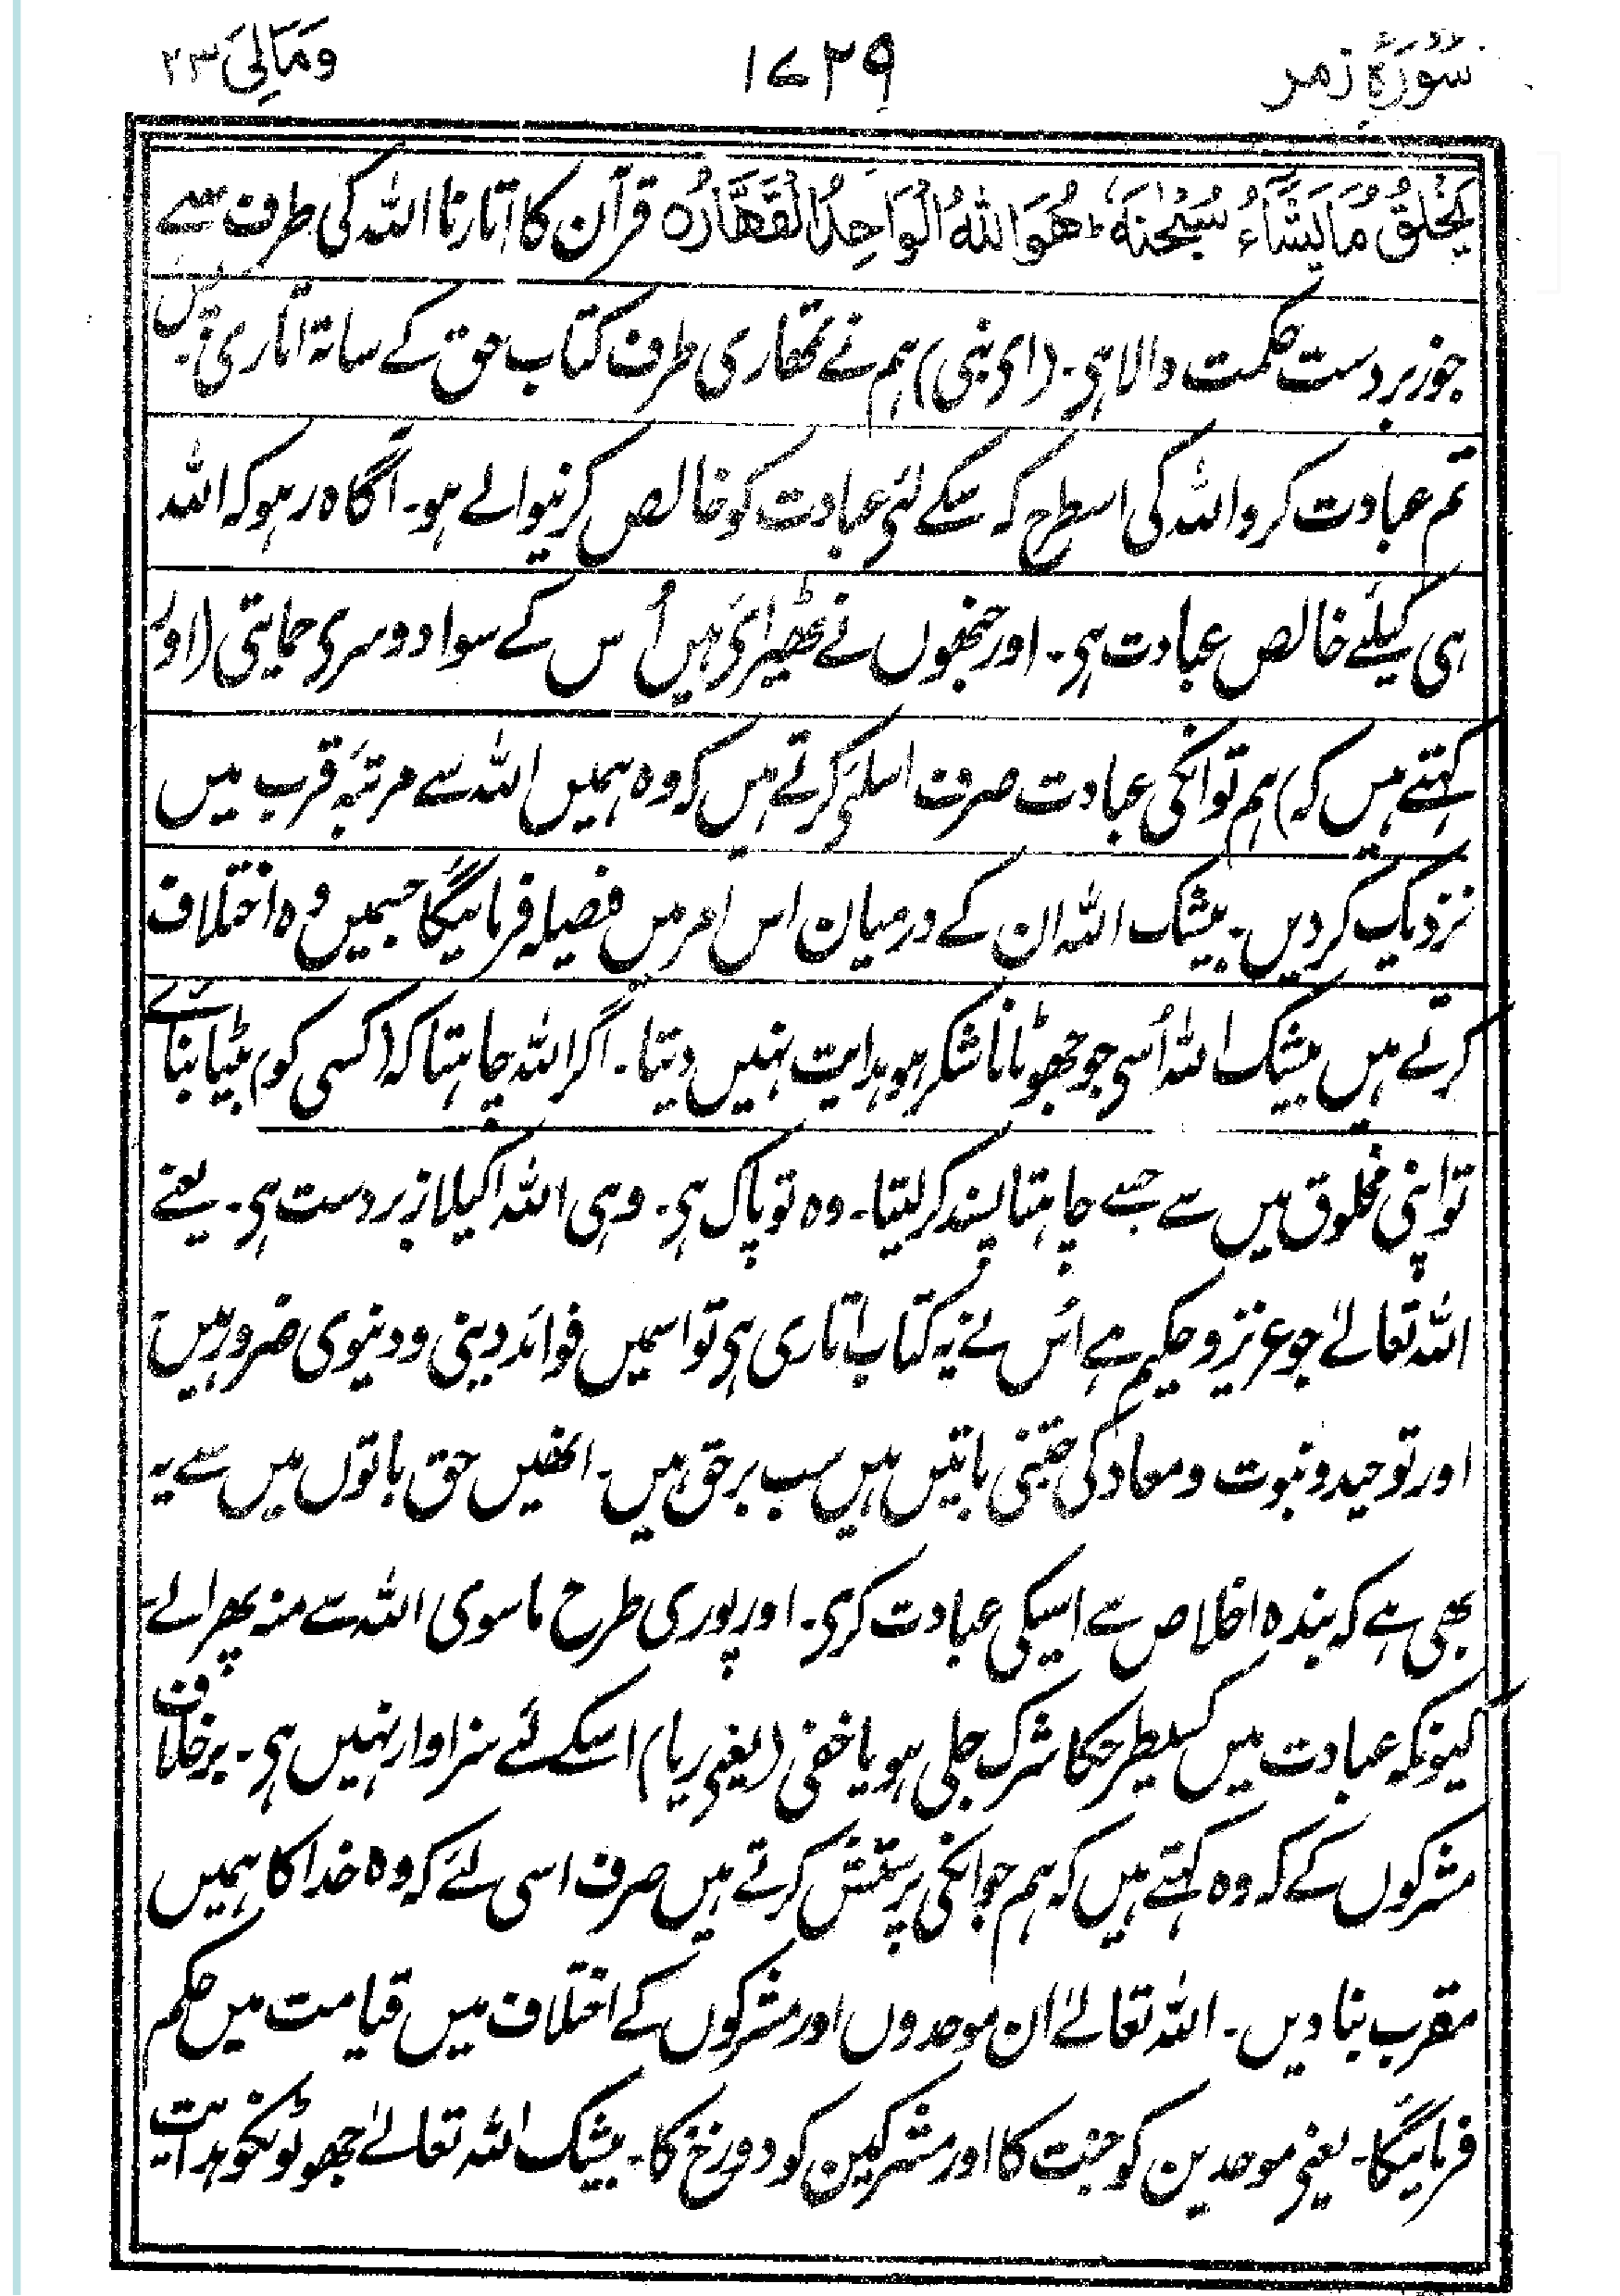 سُوْرَۂِ زمر ۱۷۲۹ وَمَالِیَ ۲۳
يَخْلُقُ مَا يَشَآءُ سُبْحٰنَهٗ ط هُوَ اللهُ الْوَاحِدُ الْقَهَّارُ ہ قرآن کا اتارنا اللہ کی طرف سے
جو زبردست حکمت والا ہی۔ (ای نبی) ہم نے تمھاری طرف کتاب حق کے ساتہ اتاری ہی پس
تم عبادت کرو اللہ کی اسطرح کہ اسکے لئی عبادت کو خالص کرنیوالے ہو۔ آگاہ رہو کہ اللہ
ہی کیلئے خالص عبادت ہی۔ اور جنھوں نے ٹھیرائی ہیں اُس کے سوا دوسری حمایتی (اور
کہتے ہیں کہ) ہم تو انکی عبادت صرف اسلئی کرتے ہیں کہ وہ ہمیں اللہ سے مرتبۂ قرب میں
نزدیک کردیں۔ بیشک اللہ ان کے درمیان اس امر میں فیصلہ فرمائیگا جسمیں وہ اختلاف
کرتے ہیں بیشک اللہ اُسی جو جھوٹا ناشکر ہو ہدایت نہیں دیتا۔ اگر اللہ چاہتا کہ (کسی کو) بیٹا بنائے
تو اپنی مخلوق میں سے جسے چاہتا پسند کرلیتا۔ وہ تو پاک ہی۔ وہی اللہ اکیلا زبردست ہی۔ یعنے
اللہ تعالےٰ جو عزیز و حکیم ہے اُس نے یہ کتاب اتاری ہی تو اسمیں فوائد دینی و دنیوی ضرور ہیں
اور توحید و نبوت و معاد کی جتنی باتیں ہیں سب برحق ہیں۔ انھیں حق باتوں میں سے یہ
بھی ہے کہ بندہ اخلاص سے اسیکی عبادت کری۔ اور پوری طرح ماسوی اللہ سے منہ پھرالے
کیونکہ عبادت میں کسیطرحکا شرک جلی ہو یا خفی (یعنی ریا) اسکے لئے سزاوار نہیں ہی۔ برخلاف
مشرکوں کے کہ وہ کہتے ہیں کہ ہم جو انکی پرستش کرتے ہیں صرف اسی لئے کہ وہ خدا کا ہمیں
مقرب بنادیں۔ اللہ تعالےٰ ان موحدوں اور مشرکوں کے اختلاف میں قیامت میں حکم
فرمائیگا۔ یعنی موحدین کو جنت کا اور مشرکین کو دوزخ کا۔ بیشک اللہ تعالےٰ جھوٹونکو ہدایت